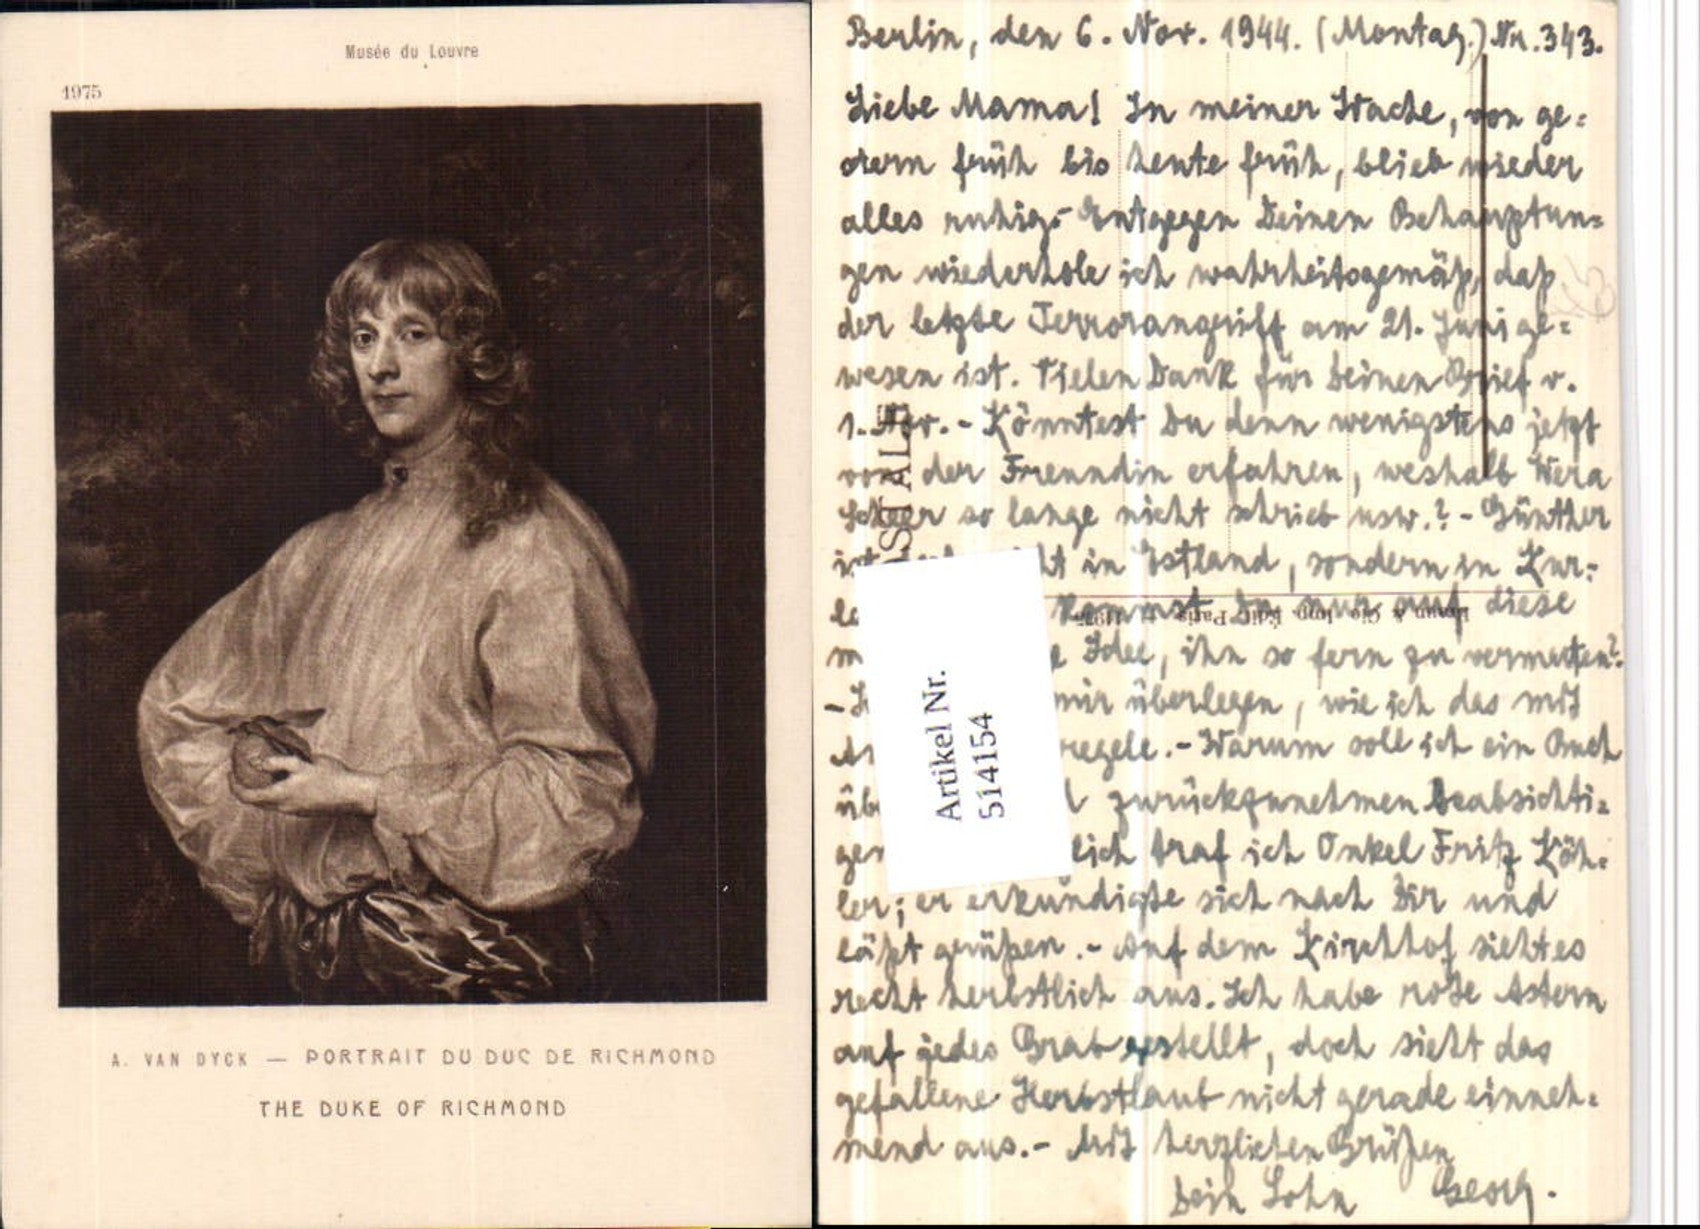 Musée du Louvre
1975
A. VAN DYCK — PORTRAIT DU DUC DE RICHMOND
THE DUKE OF RICHMOND
Berlin, den 6. Nov. 1944. (Montag.) Nr. 343.
Liebe Mama! In meiner Wache, von ge=
stern früh bis heute früh, blieb wieder
alles ruhig. - Entgegen Deinen Behauptun=
gen wiederhole ich wahrheitsgemäß, daß
der letzte Terrorangriff am 21. Juni ge=
wesen ist. Vielen Dank für Deinen Brief v.
1. Nov. - Könntest Du denn wenigstens jetzt
von der Freundin erfahren, weshalb Wera
so lange nicht schrieb usw.? - Günther
ist in Estland, sondern in Kur=
kommst Du nur auf diese
Idee, ihn so fern zu vermuten?
mir überlegen, wie ich das mit
regele. - Warum soll ich ein Buch
zurückzunehmen beabsichti=
traf ich Onkel Fritz Köh=
ler; er erkundigte sich nach Dir und
läßt grüßen. - Auf dem Kirchhof sieht es
recht herbstlich aus. Ich habe rote Astern
auf jedes Grab gestellt, doch sieht das
gefallene Herbstlaub nicht gerade einneh=
mend aus. - Mit herzlichen Grüßen
Dein Sohn Georg.
Braun & Cie Imp. Edit. Paris
Artikel Nr.
514154